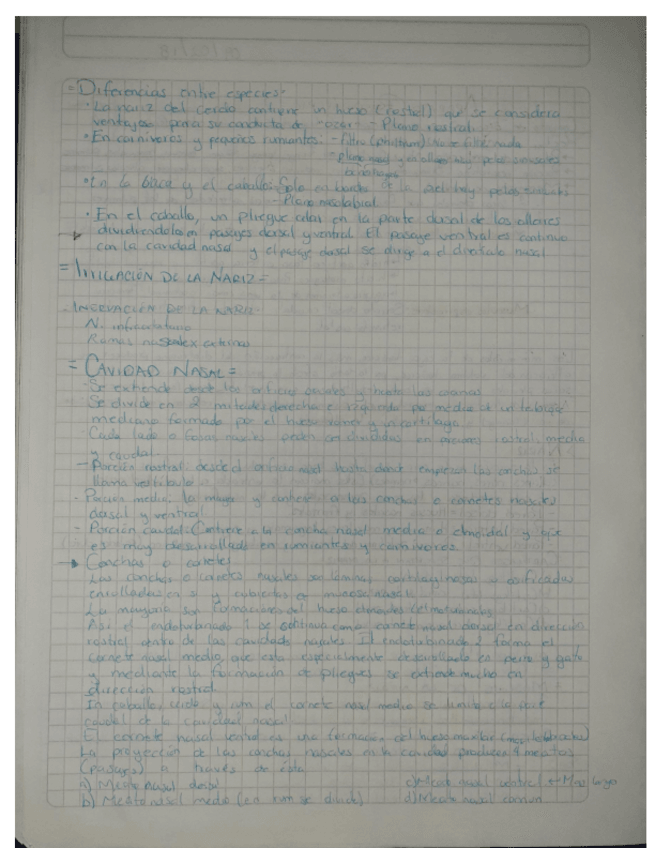 = Diferencias entre especies:
· La nariz del cerdo contiene un hueso (rostral) que se considera
ventajoso para su conducta de - Plano rostral.
· En carnívoros y pequeños rumiantes: - Filtro (philtrum)
- Plano nasal y
· En la vaca y el caballo: Solo en bordes de la piel hay pelos
- Plano nasolabial
· En el caballo, un pliegue alar en la parte dorsal de los ollares
dividiendola en pasajes dorsal y ventral. El pasaje ventral es continuo
con la cavidad nasal y el pasaje dorsal se dirige a el divertículo nasal
= IRRIGACIÓN DE LA NARIZ =
· INERVACIÓN DE LA NARIZ
N. infraorbitario
Ramas nasales externas
= CAVIDAD NASAL =
Se extiende desde los orificios nasales y hasta las coanas
Se divide en 2 mitades derecha e izquierda por medio de un tabique
mediano formado por el hueso vomer y un cartílago
Cada lado o fosas nasales pueden ser divididas en porciones rostral, media
y caudal
- Porción rostral: desde el orificio nasal hasta donde empiezan las conchas se
llama vestíbulo
- Porción media: la mayor y contiene a las conchas o cornetes nasales
dorsal y ventral
- Porción caudal: Contiene a la concha nasal media o etmoidal y que
es muy desarrollada en rumiantes y carnívoros
→ Conchas o cornetes
Las conchas o cornetes nasales son láminas cartilaginosas u osificadas
enrolladas en si y cubiertas de mucosa nasal
La mayoría son formaciones del hueso etmoides
Así el endoturbinado 1 se continua como cornete nasal dorsal en dirección
rostral dentro de las cavidades nasales. El endoturbinado 2 forma el
cornete nasal medio, que esta especialmente desarrollado en perro y gato
y mediante la formación de pliegues se extiende mucho en
dirección rostral
En caballo, cerdo y rum el cornete nasal medio se limita a la parte
caudal de la cavidad nasal
El cornete nasal ventral es una formación del hueso maxilar
La proyección de las conchas nasales en la cavidad producen 4 meatos
(pasajes) a través de ésta
a) Meato nasal dorsal c) Meato nasal ventral → Mas largo
b) Meato nasal medio (en rum se divide) d) Meato nasal común